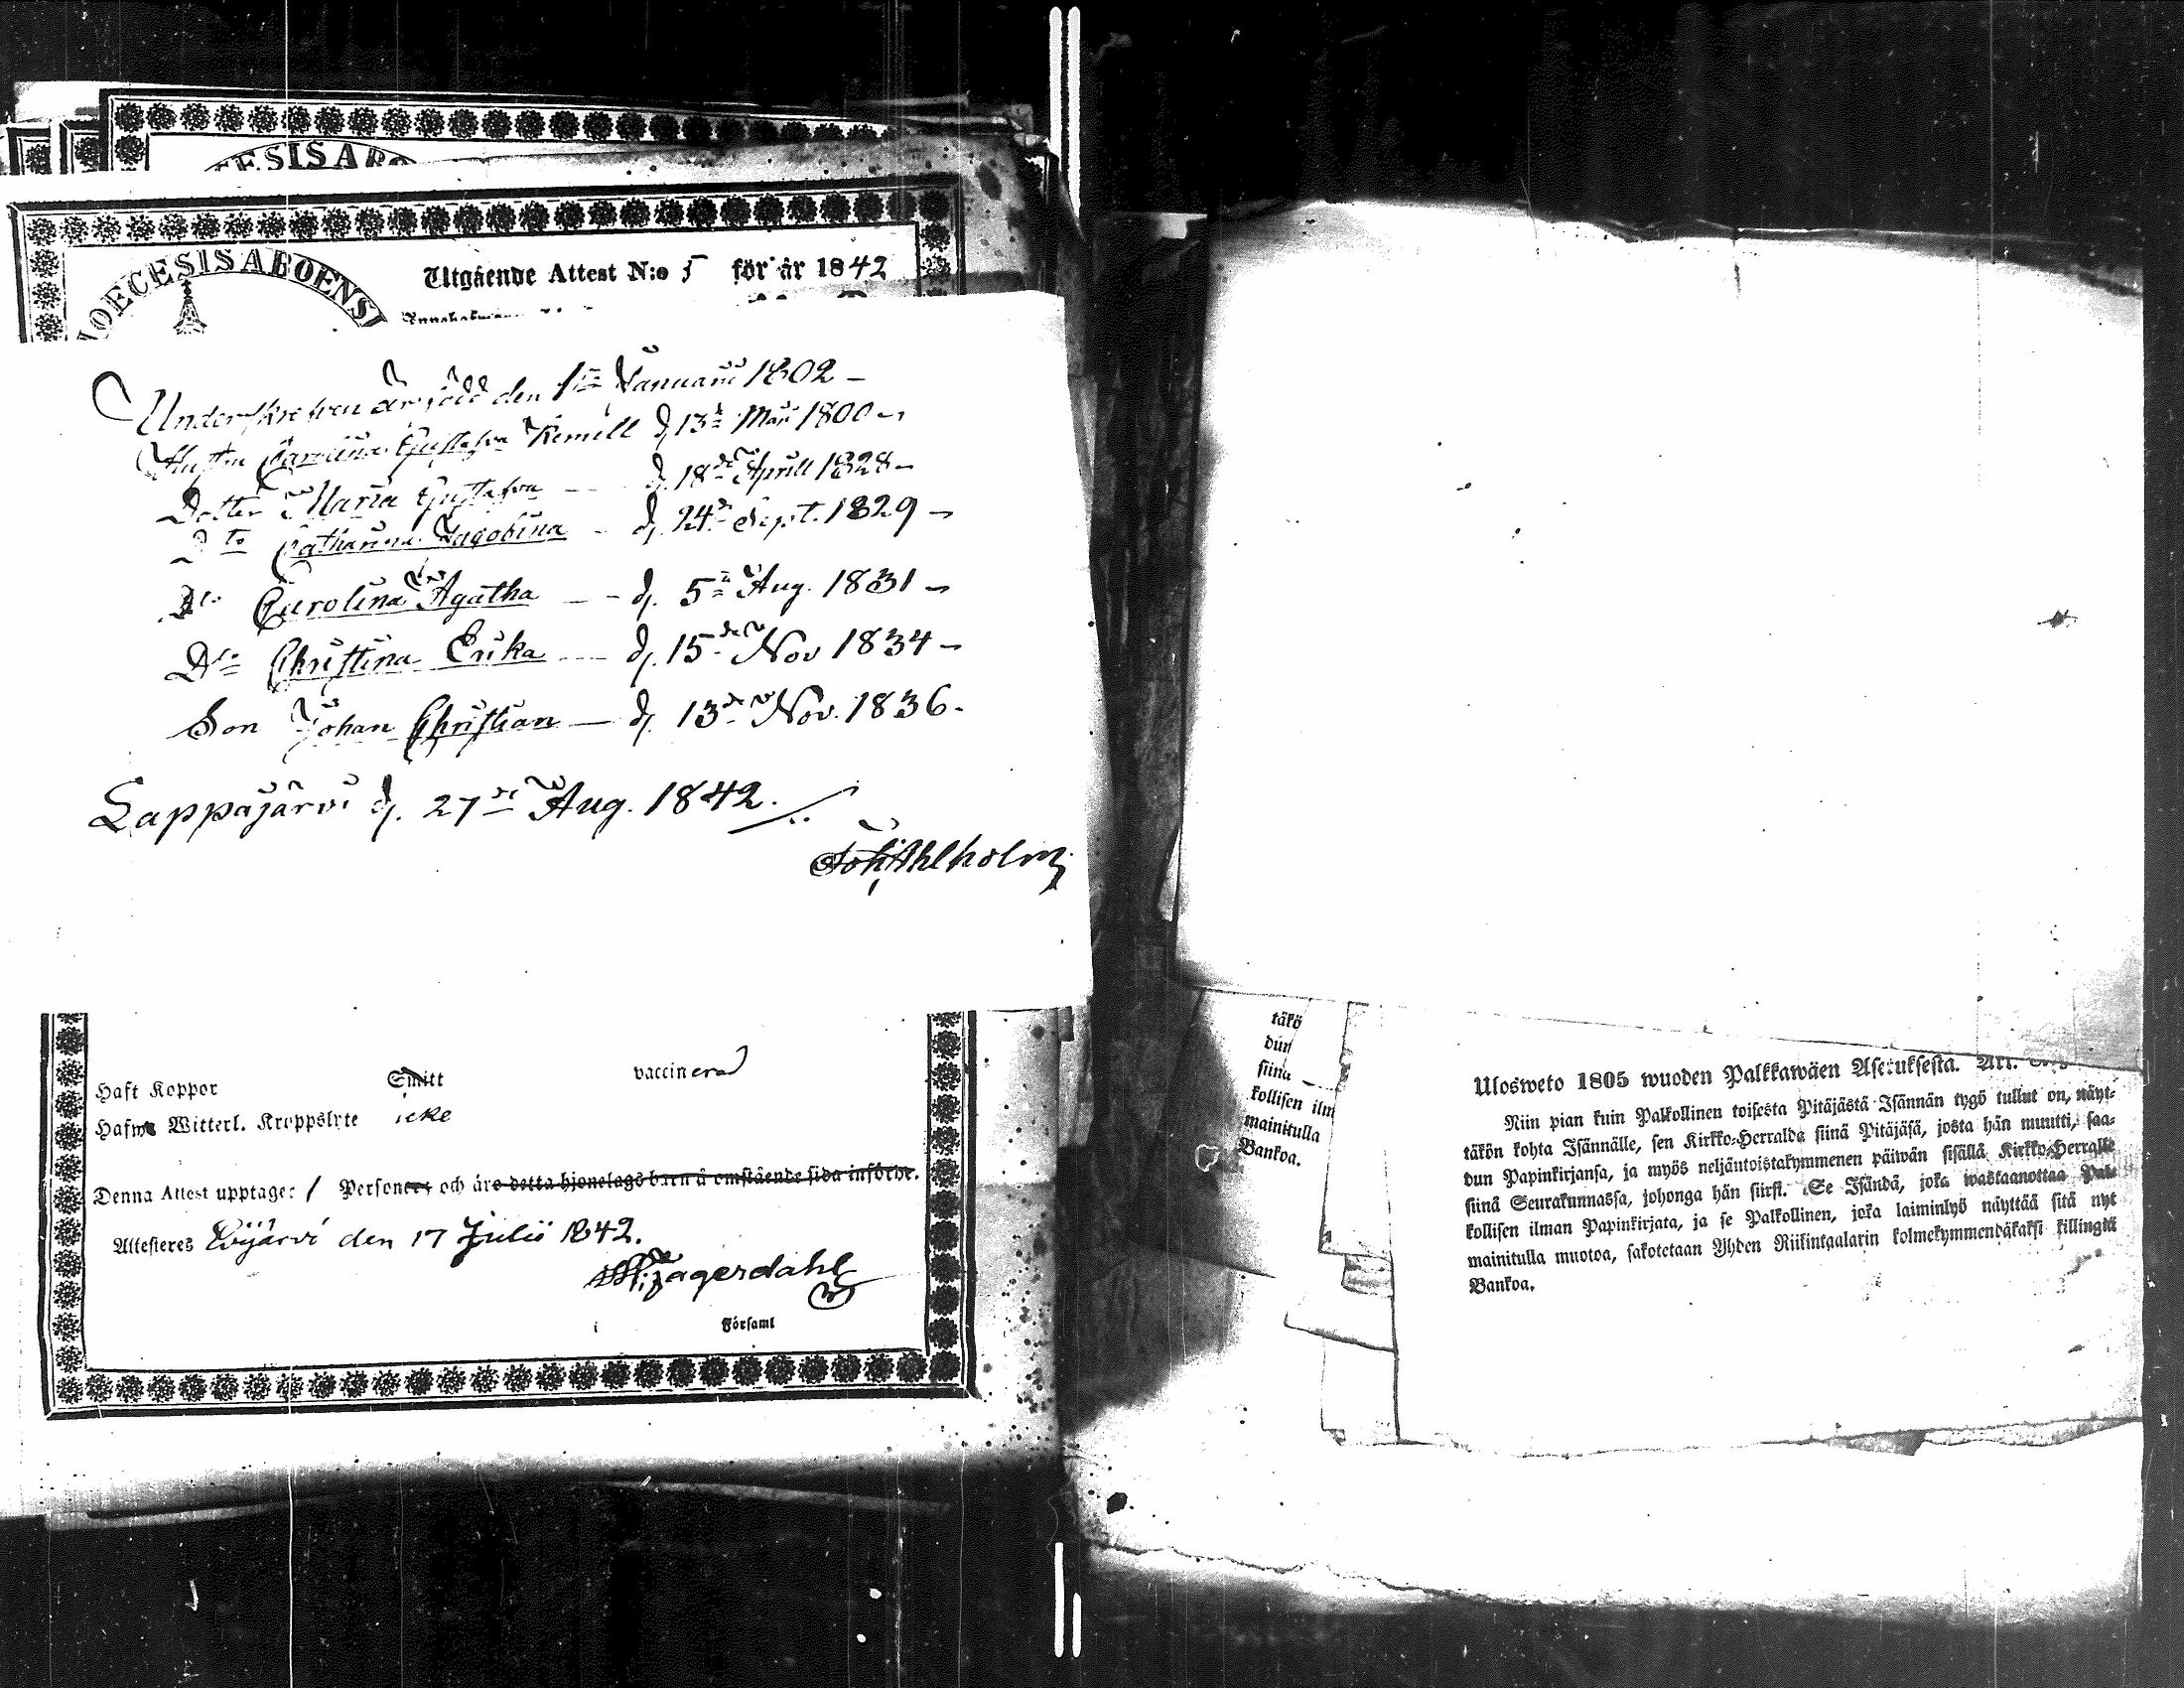 DIOECESIS ABOENSI
Utgående Attest N:o 5 för år 1842
Underskrefven är född den 1ste Januarii 1802 –
Hustru Carolina Gustafva Kemell d. 13de Maji 1800 –
Dotter Maria Gustafva – d. 18de Aprill 1828 –
Dto Catharina Jagobina – d. 24de Sept. 1829 –
Dto Carolina Agatha – – d. 5te Aug. 1831 –
Dto Christina Erika – d. 15de Nov 1834 –
Son Johan Christian – d. 13de Nov. 1836.
Lappajärvi d. 27de Aug. 1842.
Joh: Ahlholm
Haft Koppor Smitt vaccinerad
Hafwe Witterl. Kroppslyte icke
Denna Attest upptager 1 Personer och äro detta hjonelags barn å omstående sida införde.
Attesteres Evijärvi den 17 Julii 1842.
Jagerdahl
i Församl
täkö
dun
siinä
kollisen ilm
mainitulla
Bankoa.
Ulosweto 1805 wuoden Palkkawäen Asetuksesta. Art.
Niin pian kuin Palkollinen toisesta Pitäjästä Isännän tygö tullut on, näyt-
täkön kohta Isännälle, sen Kirkko-Herralda siinä Pitäjäsä, josta hän muutti, saa-
dun Papinkirjansa, ja myös neljäntoistakymmenen päiwän sisällä Kirkko-Herralle
siinä Seurakunnassa, johonga hän siirsi. Se Isändä, joka wastaanottaa Pal-
kollisen ilman Papinkirjata, ja se Palkollinen, joka laiminlyö näyttää sitä nyt
mainitulla muotoa, sakotetaan Yhden Riikintaalarin kolmekymmendäkaksi killingiä
Bankoa.